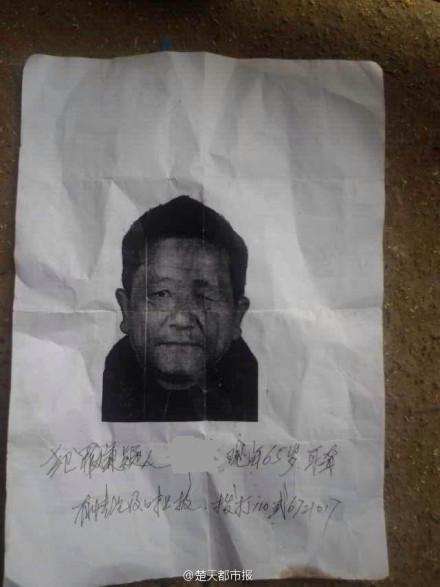 犯罪嫌疑人 现年65岁 耳聋
有情况及时上报、拨打110或6721017
@楚天都市报